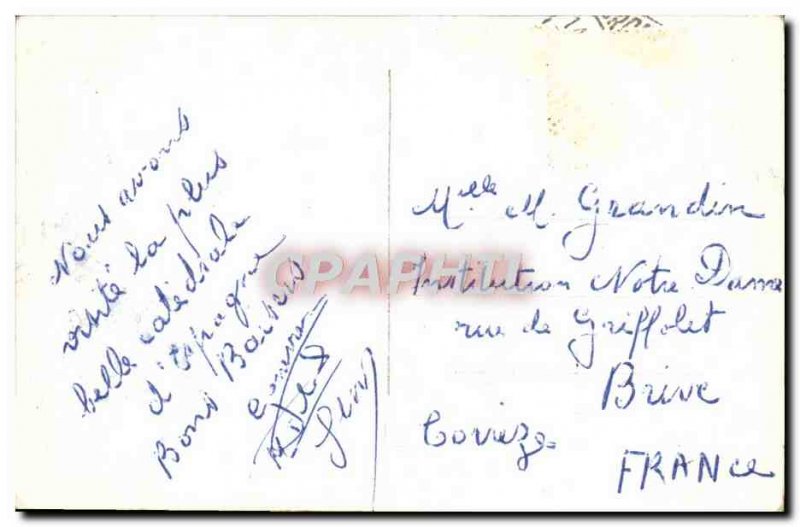 Nous avons
visité la plus
belle catédrale
d'espagne
Bons Baisers
Mlle M. Grandin
Institution Notre Dame
rue de Griffolet
Brive
Corrèze
FRANCe
CPAPHIL